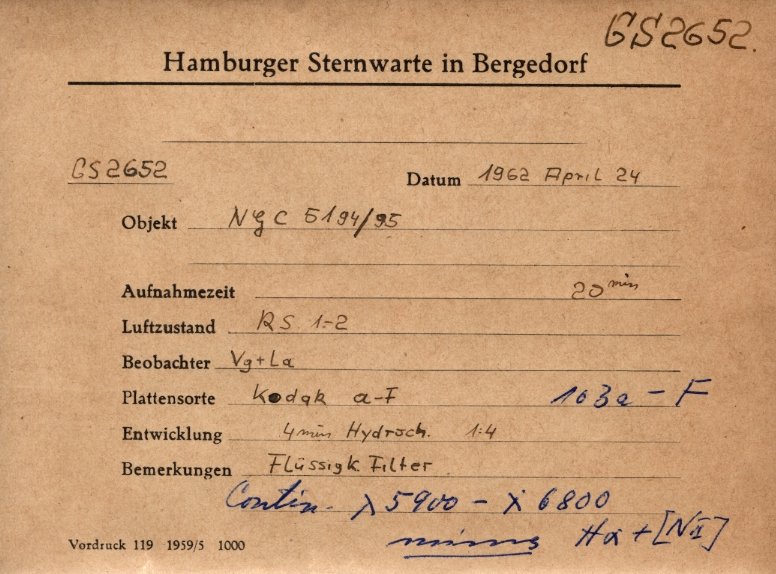 GS2652.
Hamburger Sternwarte in Bergedorf
GS2652
Datum 1962 April 24
Objekt NGC 5194/95
Aufnahmezeit 20 min
Luftzustand RS 1-2
Beobachter Vg+La
Plattensorte Kodak a-F 103a-F
Entwicklung 4min Hydroch. 1:4
Bemerkungen Flüssigk. Filter
Contin. λ 5900 - λ 6800
minus Hα + [NII]
Vordruck 119 1959/5 1000